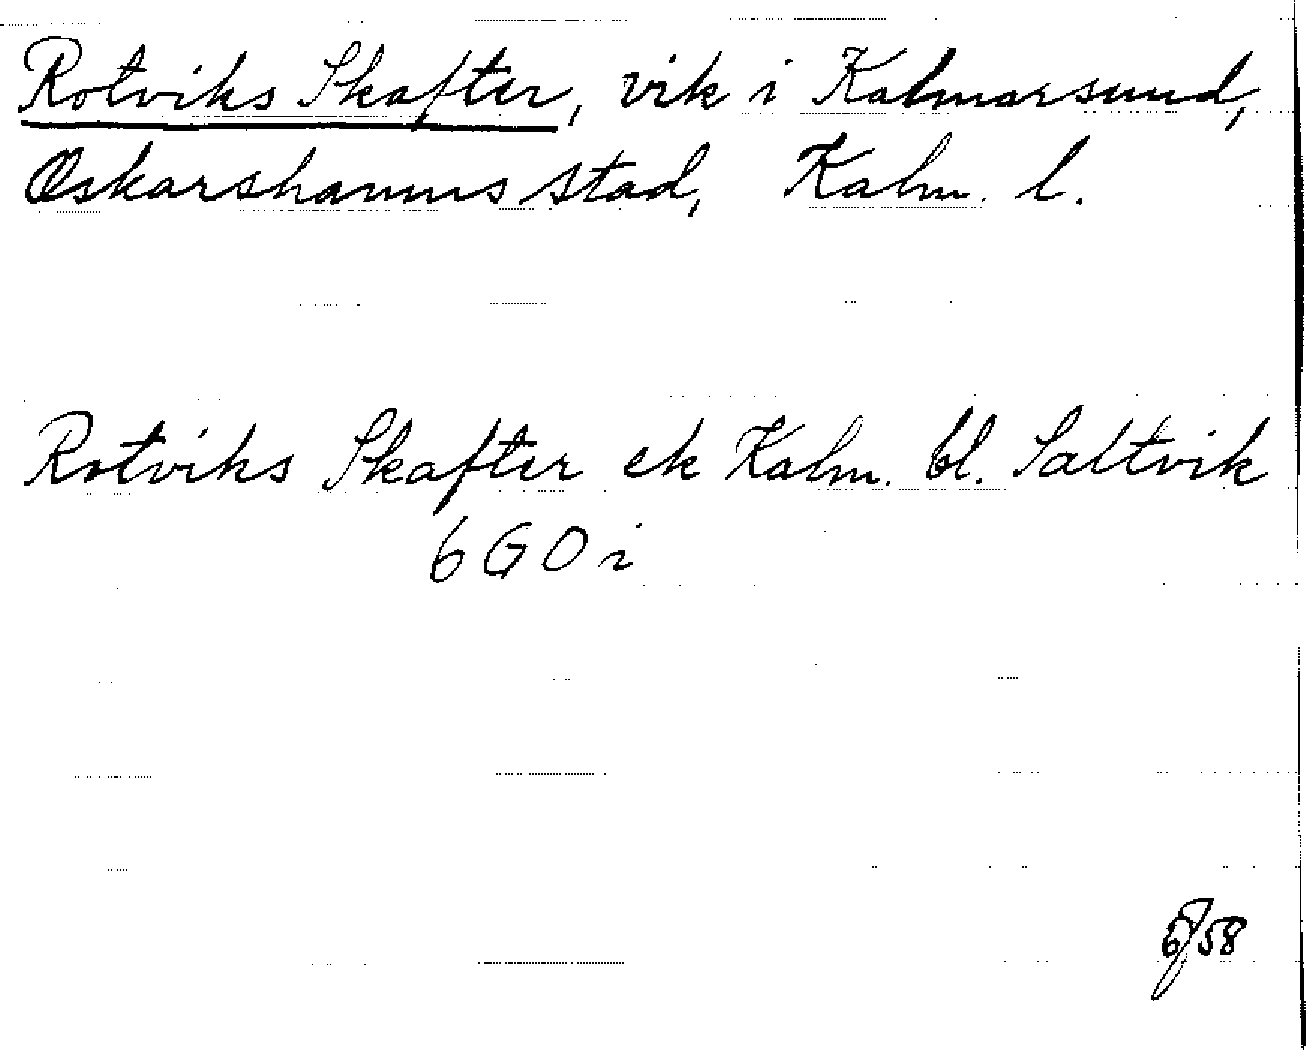 Rotviks Skafter, vik i Kalmarsund,
Oskarshamns stad, Kalm. l.
Rotviks Skafter ek Kalm. bl. Saltvik
6 G O i
6/58